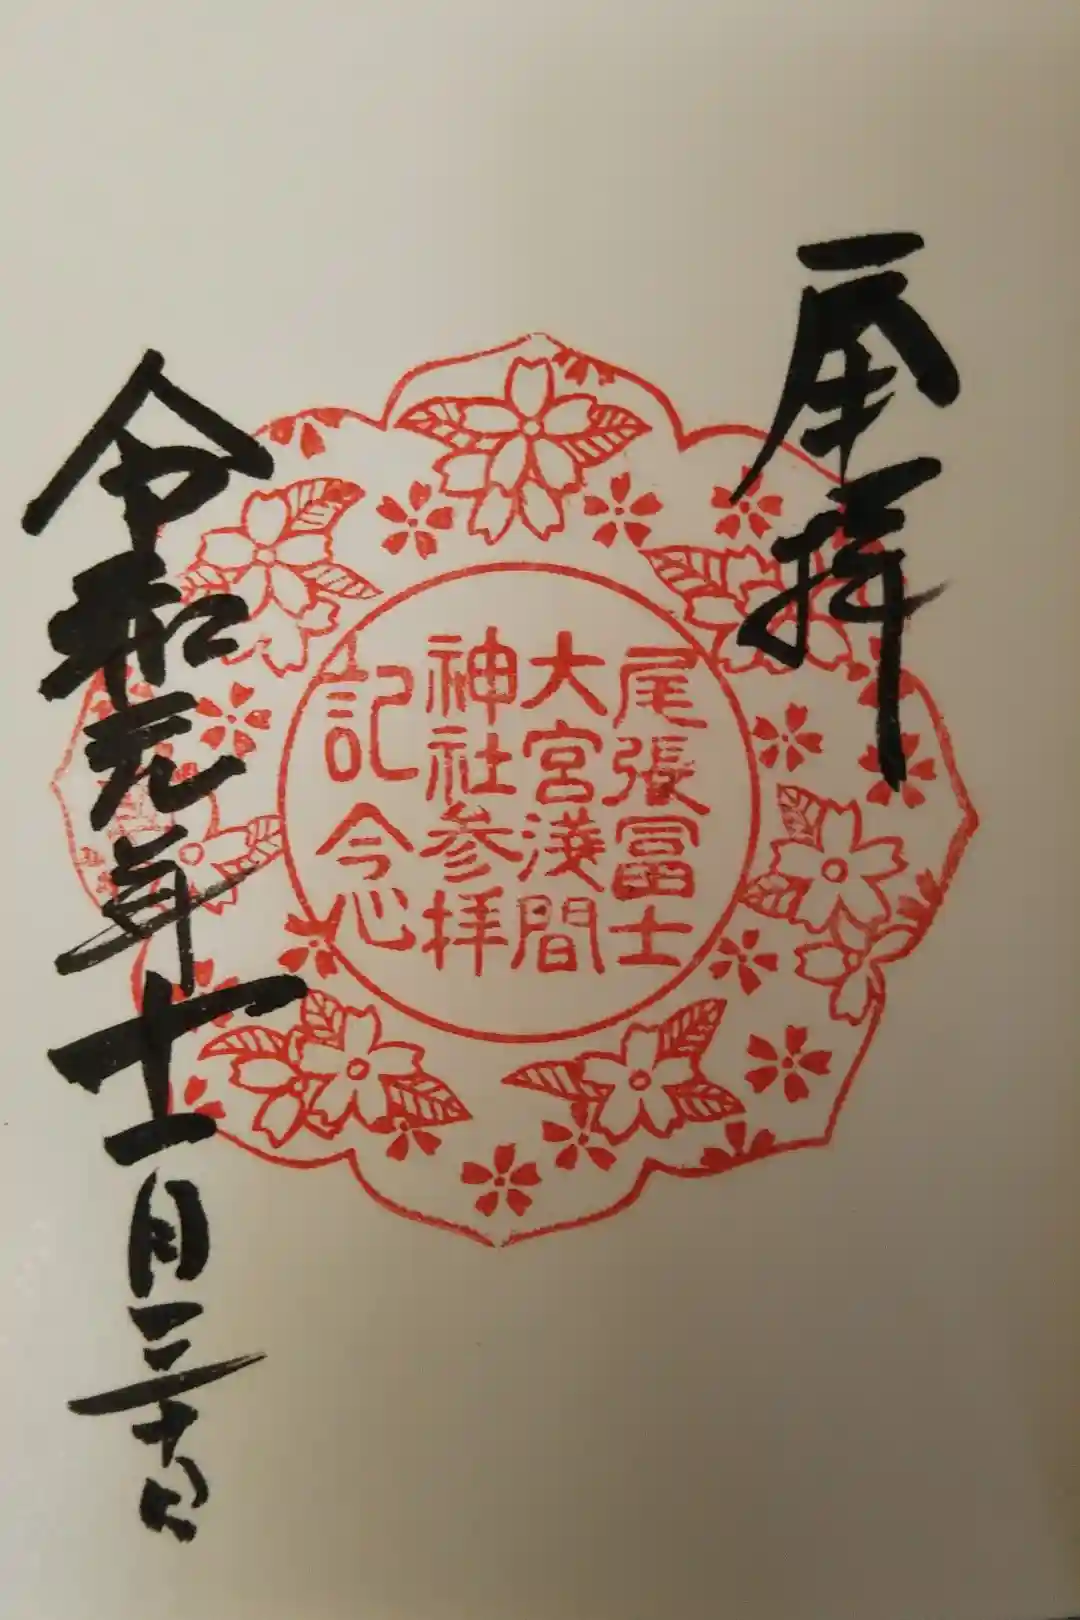 奉拝
尾張冨士
大宮淺間
神社参拝
記念
令和元年十一月三十日